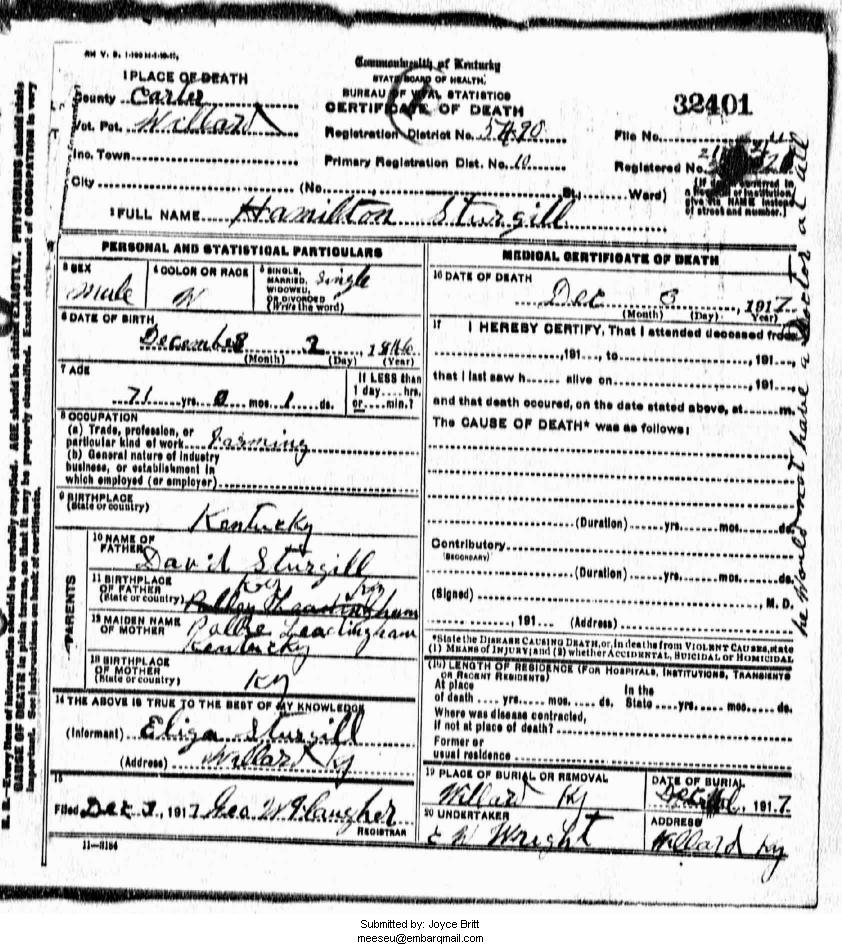 1 PLACE OF DEATH
County Carter
Vot. Pct. Willard
Inc. Town
City (No. , St., Ward)
Commonwealth of Kentucky
STATE BOARD OF HEALTH.
BUREAU OF VITAL STATISTICS
CERTIFICATE OF DEATH
Registration District No. 5490
Primary Registration Dist. No. 10
32401
File No.
Registered No.
2 FULL NAME Hamilton Sturgill
PERSONAL AND STATISTICAL PARTICULARS
3 SEX
Male
4 COLOR OR RACE
W
5 SINGLE, MARRIED, WIDOWED, OR DIVORCED (Write the word)
Single
6 DATE OF BIRTH
December 2, 1846
(Month) (Day) (Year)
7 AGE
71 yrs. 0 mos. 1 ds.
If LESS than
1 day hrs,
or min.?
8 OCCUPATION
(a) Trade, profession, or
particular kind of work Farming
(b) General nature of industry
business, or establishment in
which employed (or employer)
9 BIRTHPLACE
(State or country)
Kentucky
PARENTS
10 NAME OF FATHER
David Sturgill
11 BIRTHPLACE
OF FATHER
(State or country)
Ky
12 MAIDEN NAME
OF MOTHER
Leadingham
Kentucky
13 BIRTHPLACE
OF MOTHER
(State or country)
Ky
14 THE ABOVE IS TRUE TO THE BEST OF MY KNOWLEDGE
(Informant) Eliza Sturgill
(Address) Willard Ky
15
Filed Dec 7, 1917 Geo W
REGISTRAR
11-3184
MEDICAL CERTIFICATE OF DEATH
16 DATE OF DEATH
Dec 3, 1917
(Month) (Day) (Year)
17 I HEREBY CERTIFY, That I attended deceased from
, 191 , to , 191 ,
that I last saw h alive on , 191 ,
and that death occured, on the date stated above, at m.
The CAUSE OF DEATH* was as follows:
(Duration) yrs. mos. ds.
Contributory
(SECONDARY)
(Duration) yrs. mos. ds.
(Signed) , M. D.
, 191 (Address)
*State the DISEASE CAUSING DEATH, or, in deaths from VIOLENT CAUSES, state
(1) MEANS OF INJURY; and (2) whether ACCIDENTAL, SUICIDAL or HOMICIDAL
LENGTH OF RESIDENCE (FOR HOSPITALS, INSTITUTIONS, TRANSIENTS
OR RECENT RESIDENTS)
At place of death yrs. mos. ds. In the State yrs. mos. ds.
Where was disease contracted,
if not at place of death?
Former or
usual residence
19 PLACE OF BURIAL OR REMOVAL
Willard Ky
DATE OF BURIAL
, 1917
20 UNDERTAKER
E W Wright
ADDRESS
Willard Ky
he Would not have a Doctor at all
Submitted by: Joyce Britt
meeseu@embarqmail.com